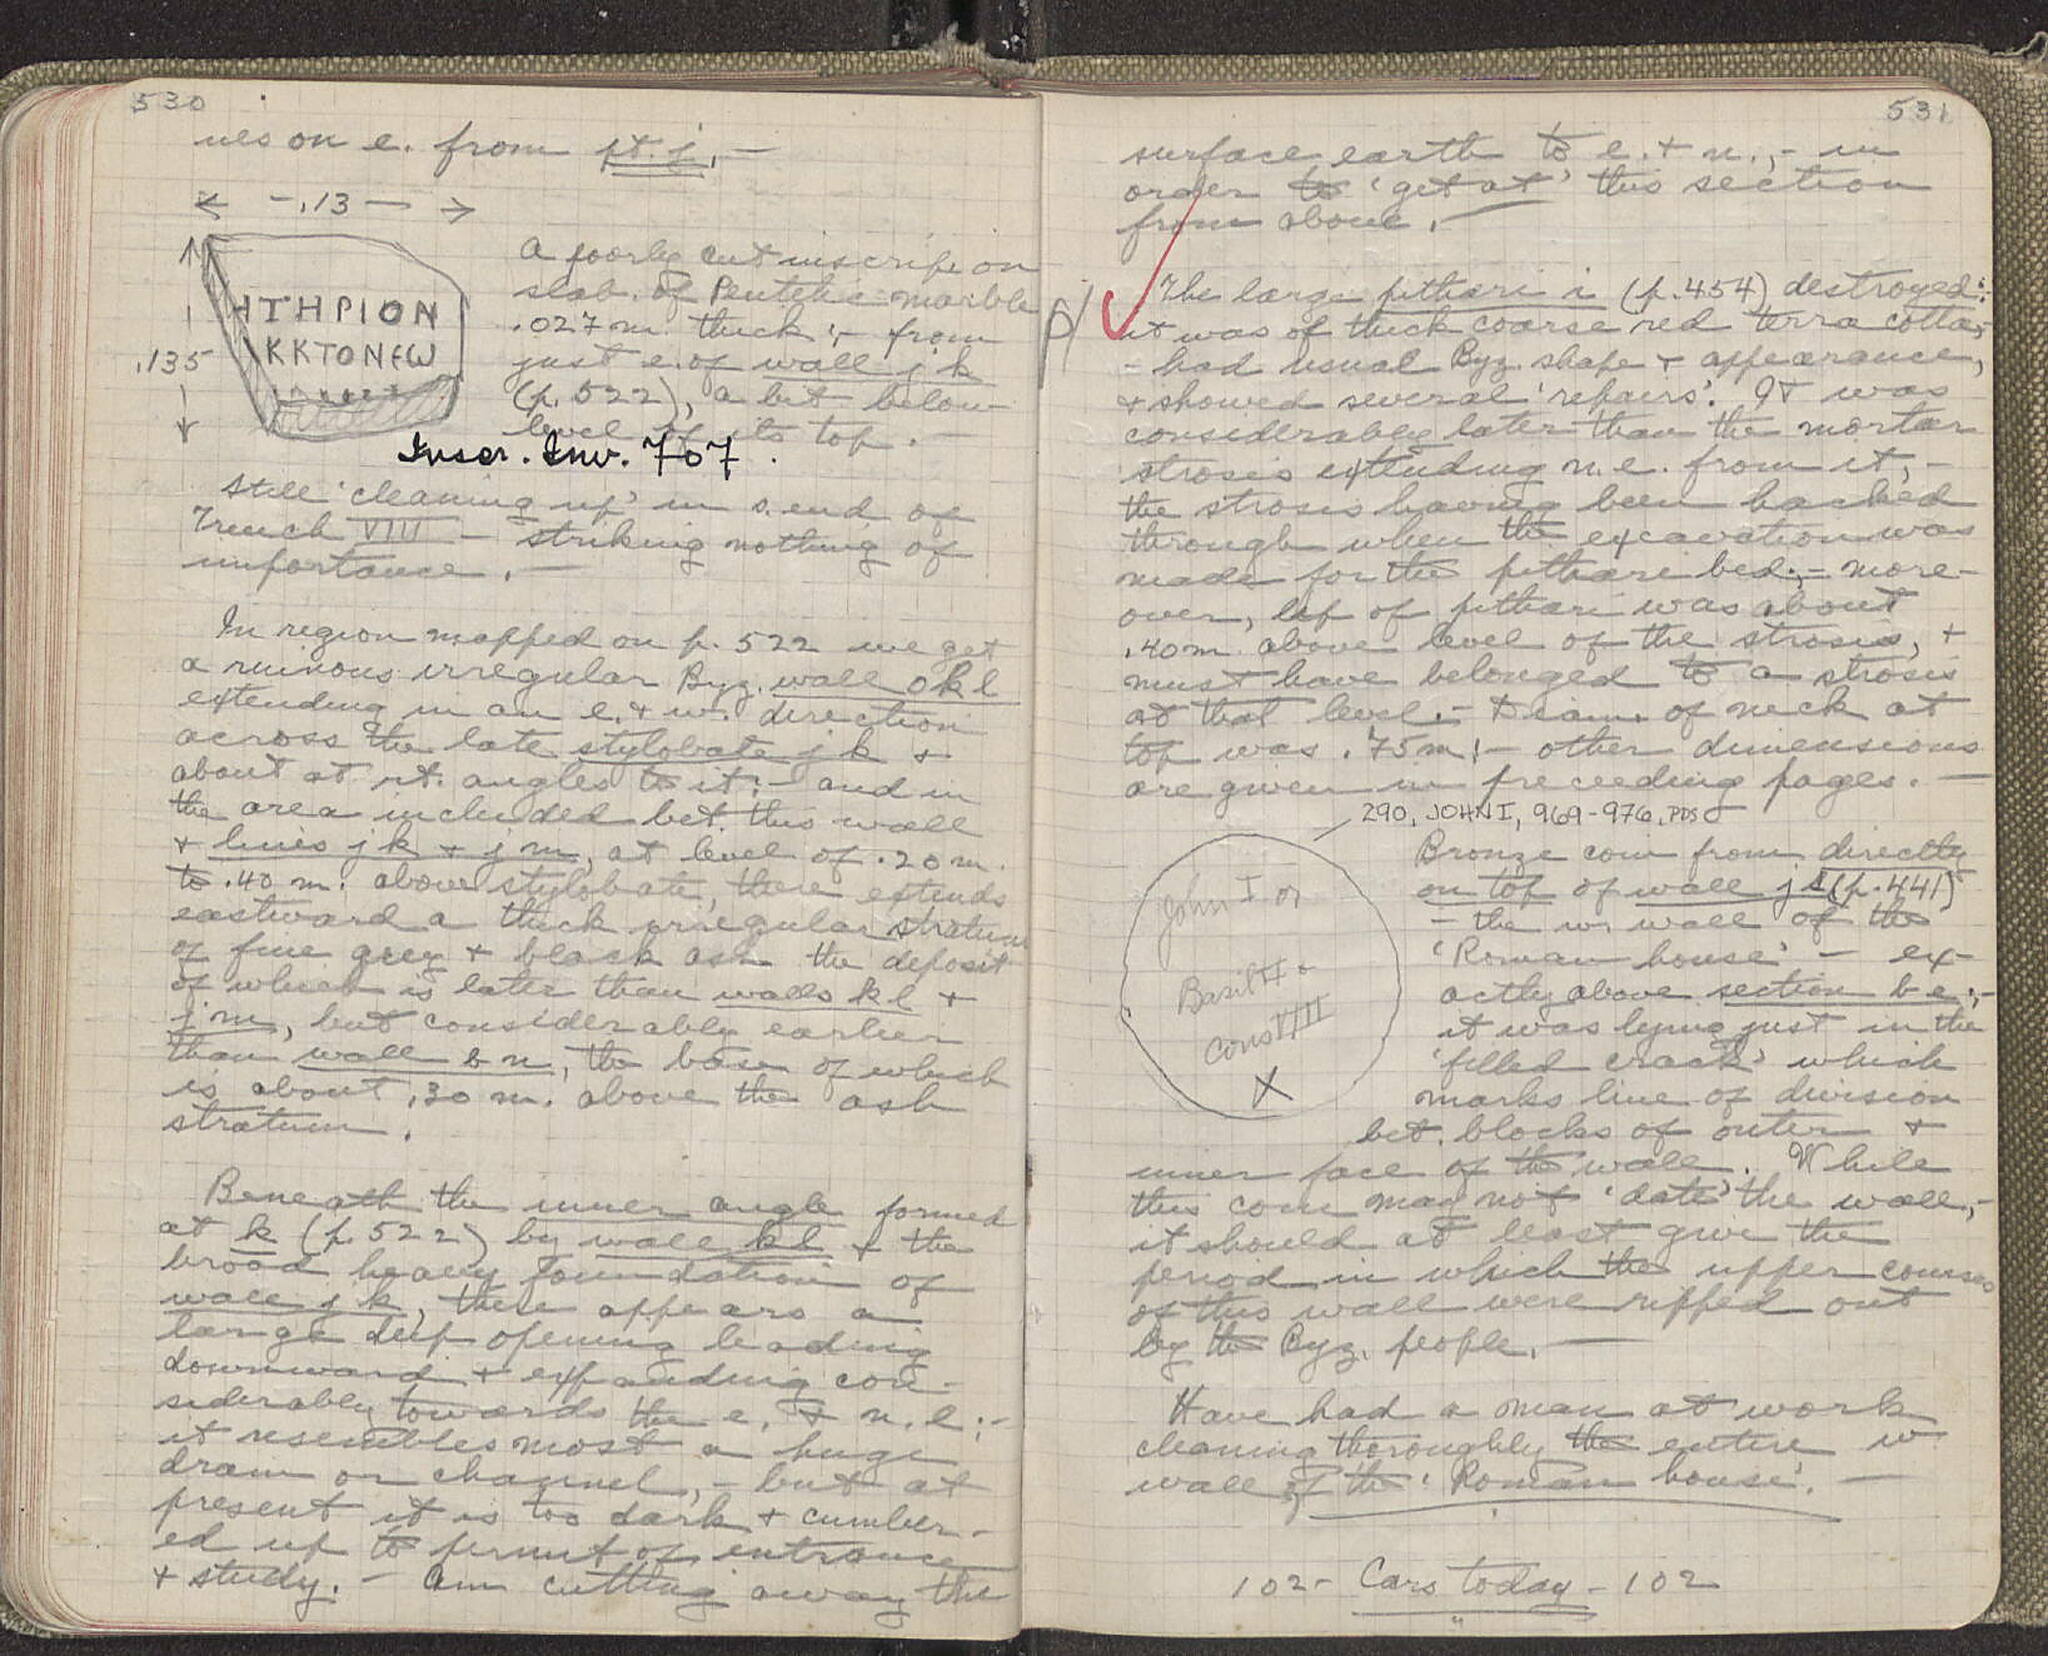 530
ues on e. from pt. j. —
← — .13 — →
.135
HTHPION
KKTONEW
A poorly cut inscrip. on
slab. of Pentelic marble
.027 m. thick;- from
just e. of wall jk
(p. 522), a bit below
level of its top. —
Inscr. Inv. 707.
Still 'cleaning up' in s. end of
Trench VIII — striking nothing of
importance. —
In region mapped on p. 522 we get
a ruinous irregular Byz. wall okl
extending in an e. + w. direction
across the late stylobate jk +
about at rt. angles to it:- and in
the area included bet. this wall
+ lines jk + jm, at level of .20 m.
to .40 m. above stylobate, there extends
eastward a thick irregular stratum
of fine grey + black ash the deposit
of which is later than walls kl +
jm, but considerably earlier
than wall & n, the base of which
is about .30 m. above the ash
stratum.
Beneath the inner angle formed
at k (p. 522) by wall kl + the
broad heavy foundation of
wall jk, there appears a
large deep opening leading
downward + expanding con-
siderably towards the e. + n. e.;-
it resembles most a huge
drain or channel,- but at
present it is too dark + cumber-
ed up to permit of entrance
+ study. — Am cutting away the
531
surface earth to e. + n.,- in
order to 'get at' this section
from above. —
The large pithari i (p. 454) destroyed:
it was of thick coarse red terra cotta,
- had usual Byz. shape + appearance,
+ showed several 'repairs'. It was
considerably later than the mortar
strosis extending n. e. from it,-
the strosis having been hacked
through when the excavation was
made for the pithari bed;- more-
over, lip of pithari was about
.40 m. above level of the strosis, +
must have belonged to a strosis
at that level.- Diam. of neck at
top was .75 m:- other dimensions
are given in preceeding pages. —
290, JOHN I, 969-976, PDS
John I or
Basil II +
Cons VIII
X
Bronze coin from directly
on top of wall js (p. 441)
- the w. wall of the
'Roman house' - ex-
actly above section be;-
it was lying just in the
'filled crack' which
marks line of division
bet. blocks of outer +
inner face of the wall. While
this coin may not 'date' the wall,-
it should at least give the
period in which the upper courses
of this wall were ripped out
by the Byz. people. —
Have had a man at work
cleaning thoroughly the entire w
wall of the 'Roman house'. —
102 - Cars today - 102